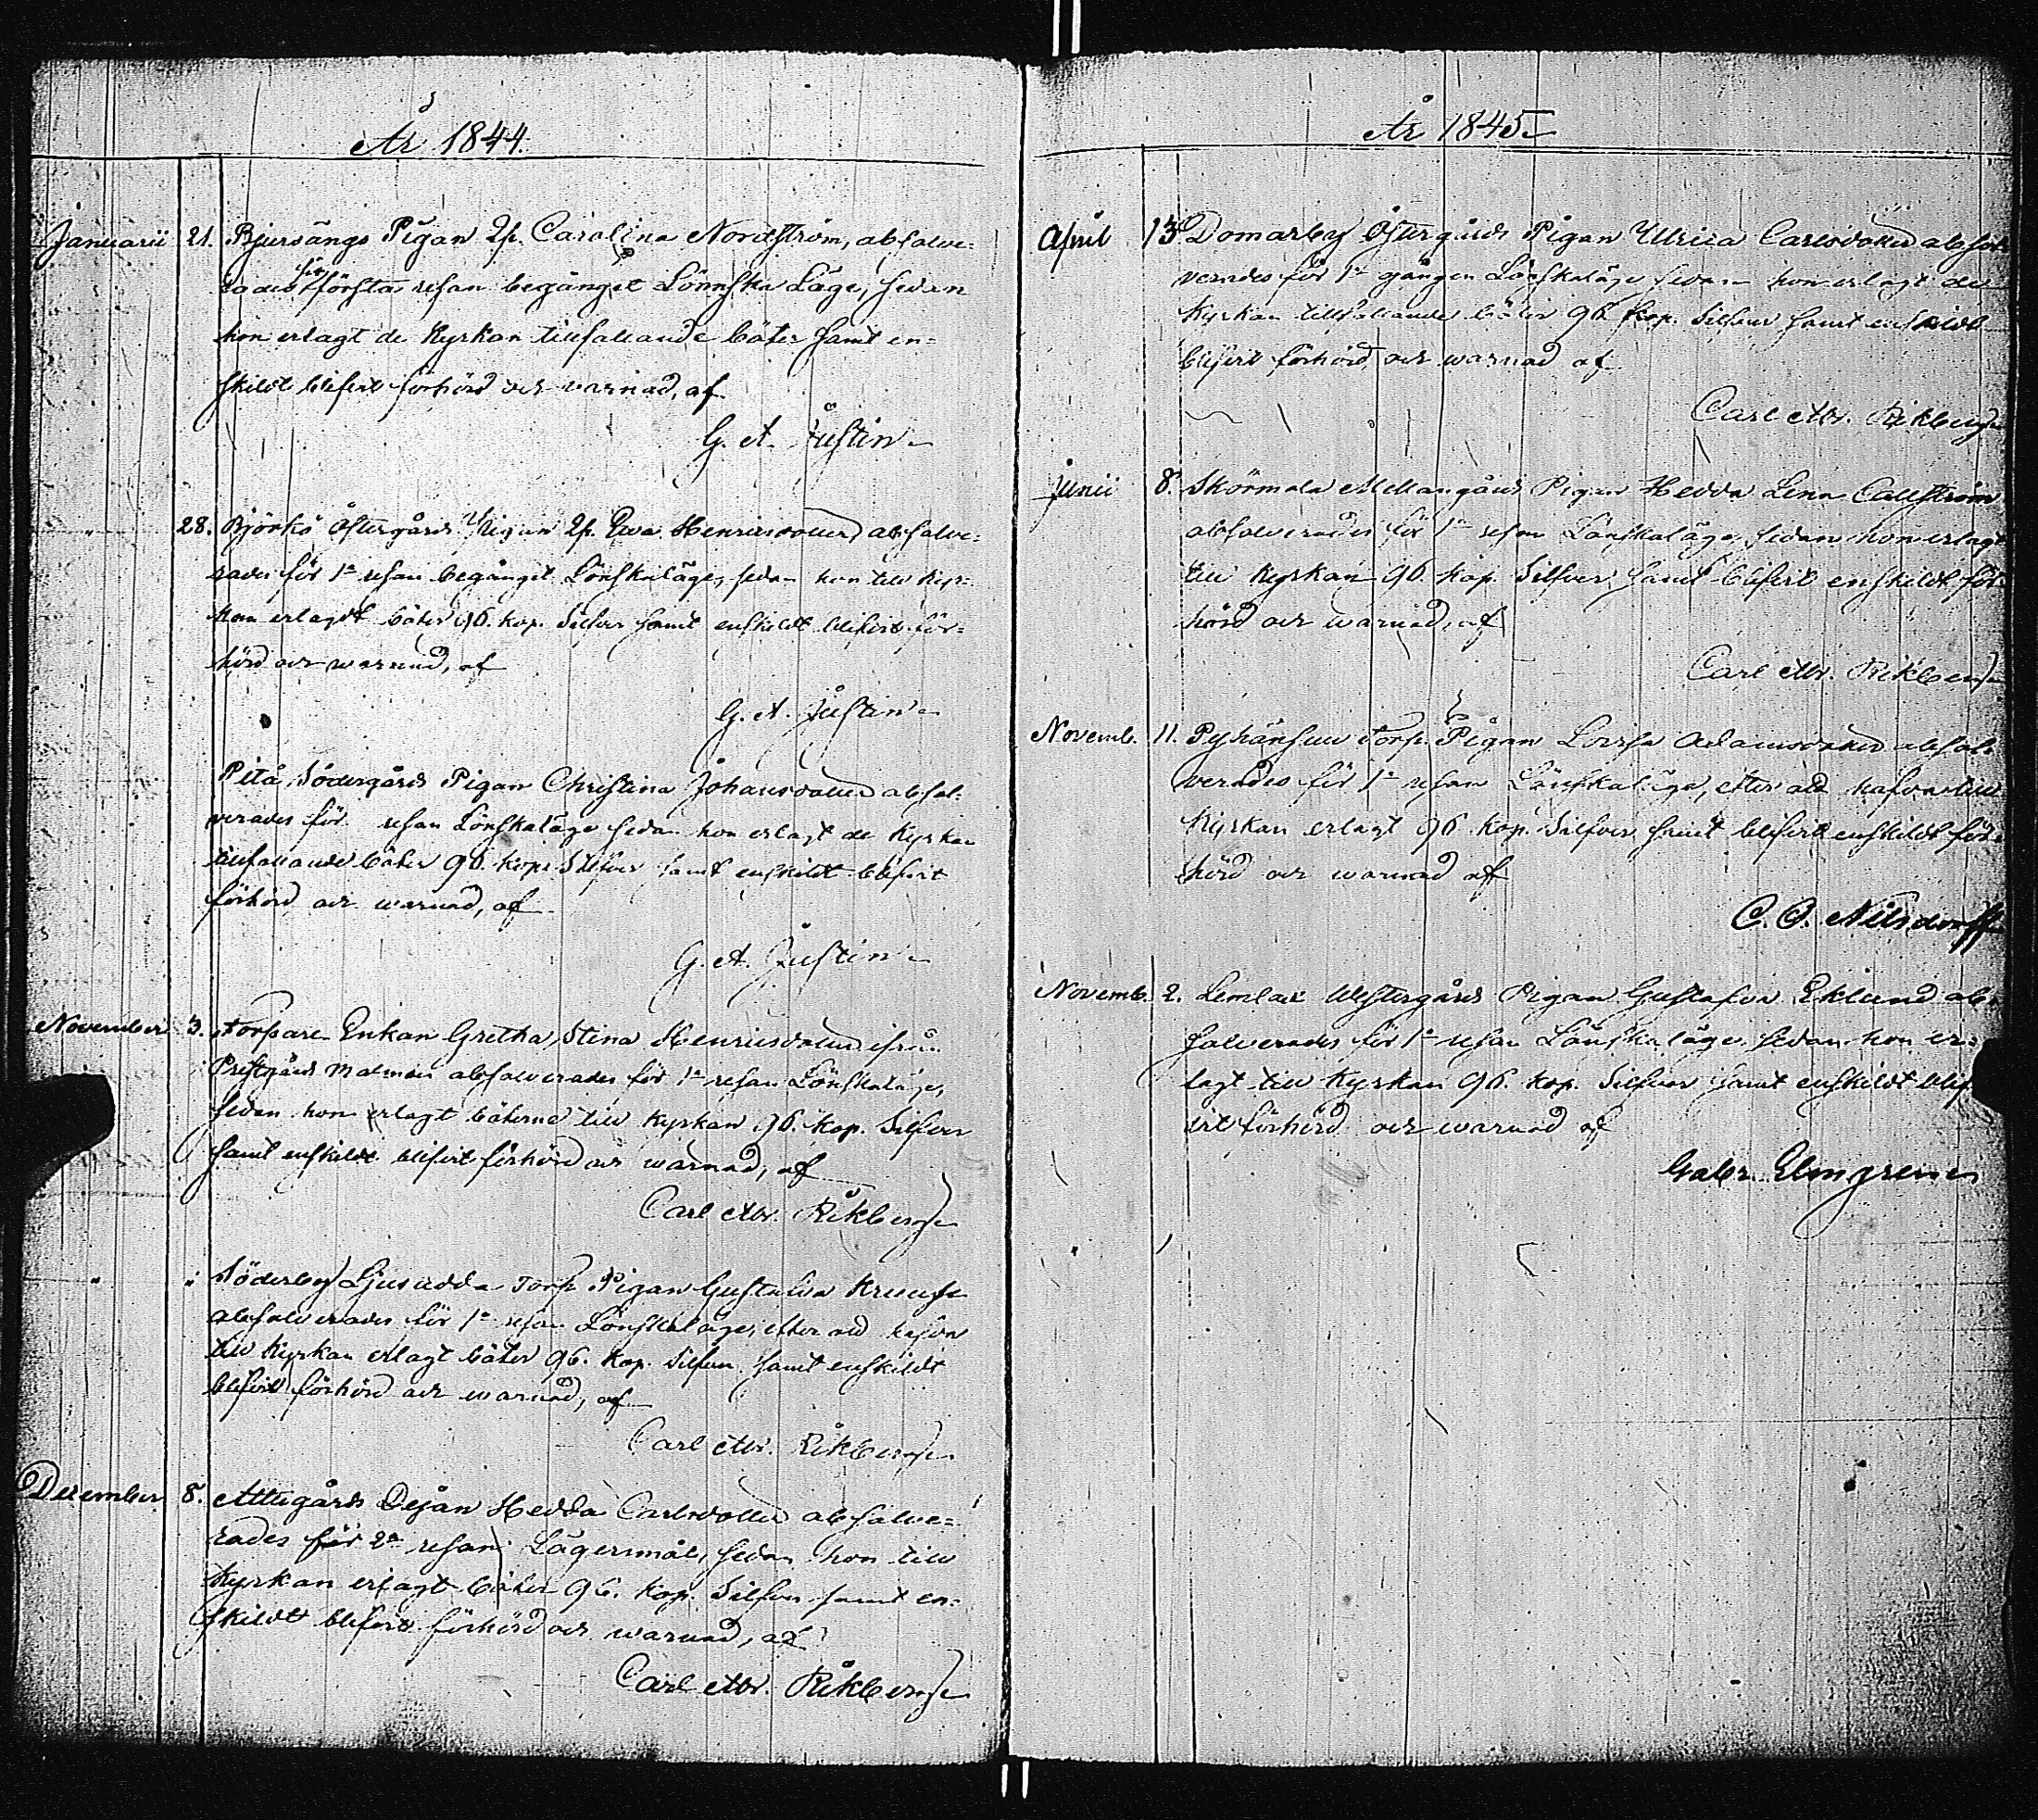 År 1844.
Januarii 21. Bjursängs Pigan Carolina Nordström, absolve=
rades för första resan begånget Lönnska Läge, sedan
hon erlagt de Kyrkan tillfallande böter samt en=
skildt blifvit förhörd och varnad, af
G. A. Justin
28. Björkö Östergårds Pigan Eva Henricsdotter absolve=
rades för 1a resan begånget Lönskaläge, sedan hon till Kyr=
kan erlagdt böter 96. kop. Silfver samt enskildt blifvit för=
hörd och warnad, af
G. A. Justin
Pitå Södergårds Pigan Christina Johansdotter absol=
verades för resan Lönskaläge sedan hon erlagt de Kyrkan
tillfallande böter 96. kop. Silfver samt enskildt blifvit
förhörd och warnad, af
G. A. Justin
November 3. Torpare Enkan Gretha Stina Henricsdotter ifrån
Prestgårds Malmen absolverades för 1a resan Lönskaläge,
sedan hon erlagt böterne till Kyrkan 96. kop. Silfver
samt enskildt blifvit förhörd och warnad, af
Carl Abr. Rikberg
" " Söderby Ljusudda Torp Pigan Gustafva Kruuse
absolverades för 1a resan Lönskaläge, efter att hafva
till Kyrkan erlagt böter 96. kop. Silfver, samt enskildt
blifvit förhörd och warnad, af
Carl Abr. Rikberg
December 8. Attugårds Dejan Hedda Carlsdotter absolve=
rades för 2a resan Lägersmål, sedan hon till
Kyrkan erlagt böter 96. kop. Silfver samt en=
skildt blifvit förhörd och warnad, af
Carl Abr. Rikberg
År 1845
April 13 Domarby Östergårds Pigan Ulrica Carlsdotter absol
verades för 1a gången Lönskaläge sedan hon erlagt de
Kyrkan tillfallande böter 96 kop. Silfver samt enskildt
blifvit förhörd och warnad af
Carl Abr. Rikberg
Junii 8. Skörmala Mellangårds Pigan Hedda Lena Callström
absolverades för 1a resan Lönskaläge, sedan hon erlagt
till Kyrkan 96. kop. Silfver, samt blifvit enskildt för=
hörd och warnad, af
Carl Abr. Rikberg
Novemb. 11. Pyhänsuu Torp Pigan Lovisa Adamsdotter absol=
verades för 1a resan Lönskaläge, efter att hafva till
Kyrkan erlagt 96 kop. Silfver samt blifvit enskildt för=
hörd och warnad af
Novemb. 2. Lemlax Westergårds Pigan Gustafva Eklund ab=
solverades för 1a resan Lönskaläge sedan hon er=
lagt till Kyrkan 96. kop. Silfver samt enskildt blif
vit förhörd och warnad af
Gabr. Elmgren